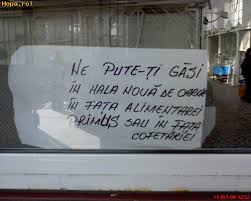 Hopa.ro!
NE PUTE-ȚI GĂSI
ÎN HALA NOUĂ DE CARNE
ÎN FAȚA ALIMENTAREI
PRIMUS SAU ÎN FAȚA
COFETĂRIEI